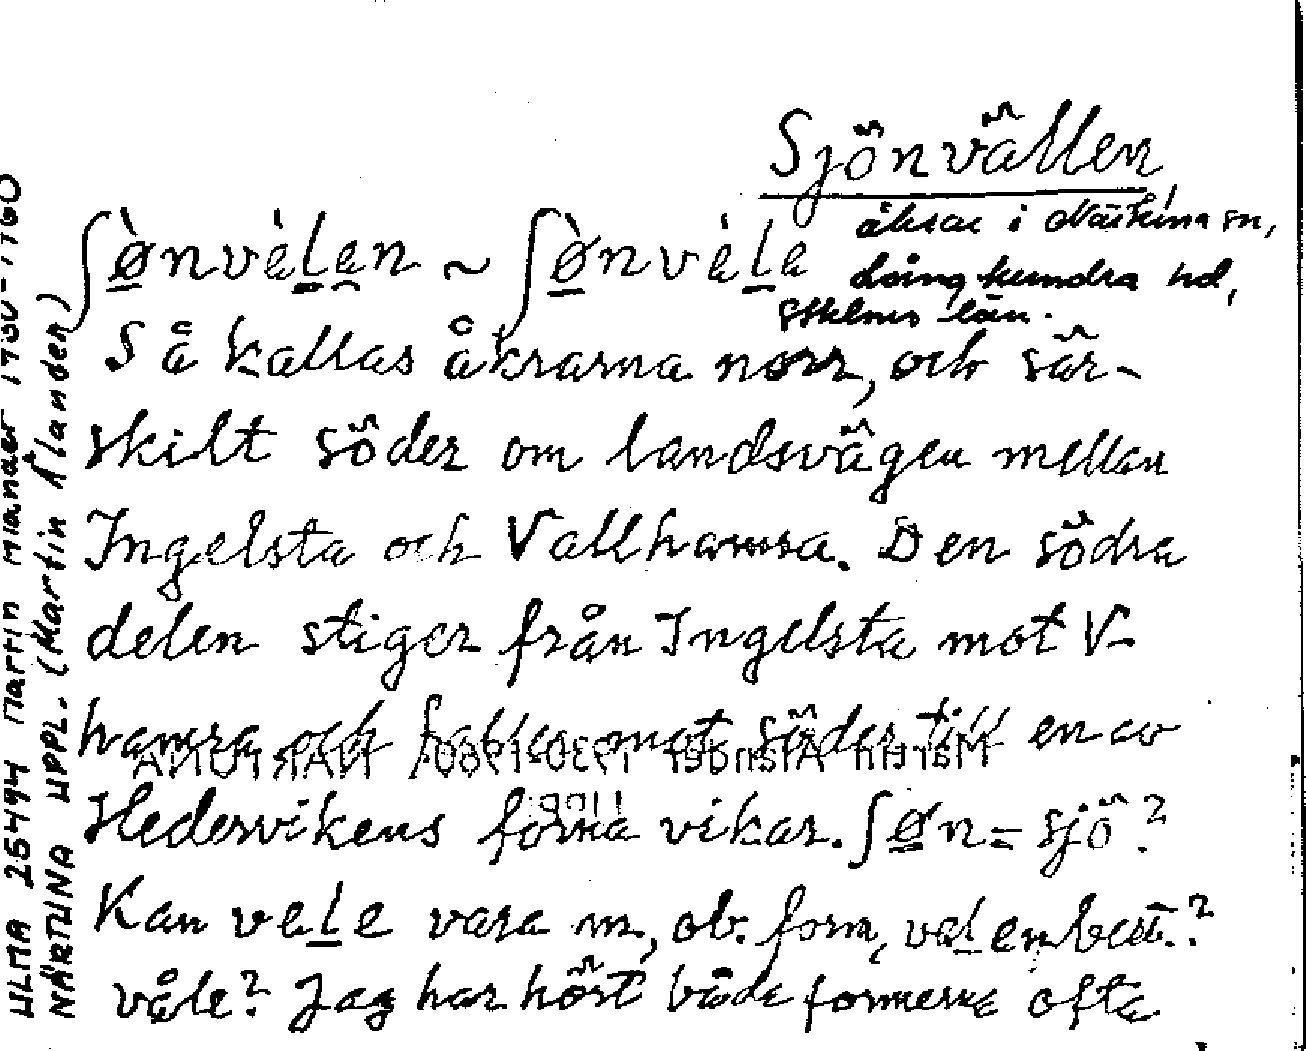 Sjönvällen,
åkrar i Närtuna sn,
Långhundra hd,
Sthlms län.
ʃø̀nvèlen ~ ʃø̀nvèle
Så kallas åkrarna norr, och sär-
skilt söder om landsvägen mellan
Ingelsta och Vallhamra. Den södra
delen stiger från Ingelsta mot V-
hamra och faller mot söder till en av
Hedervikens forna vikar. ʃøn = sjö?
Kan vele vara m, ob. form, velen best.?
våle? Jag har hört båda formerna ofta
ULMA 25494 Martin Ålander 1930-1960
NÄRTUNA UPPL. (Martin Ålander)
Martin Ålander 1930-1960, NÄRTUNA
Uppl.